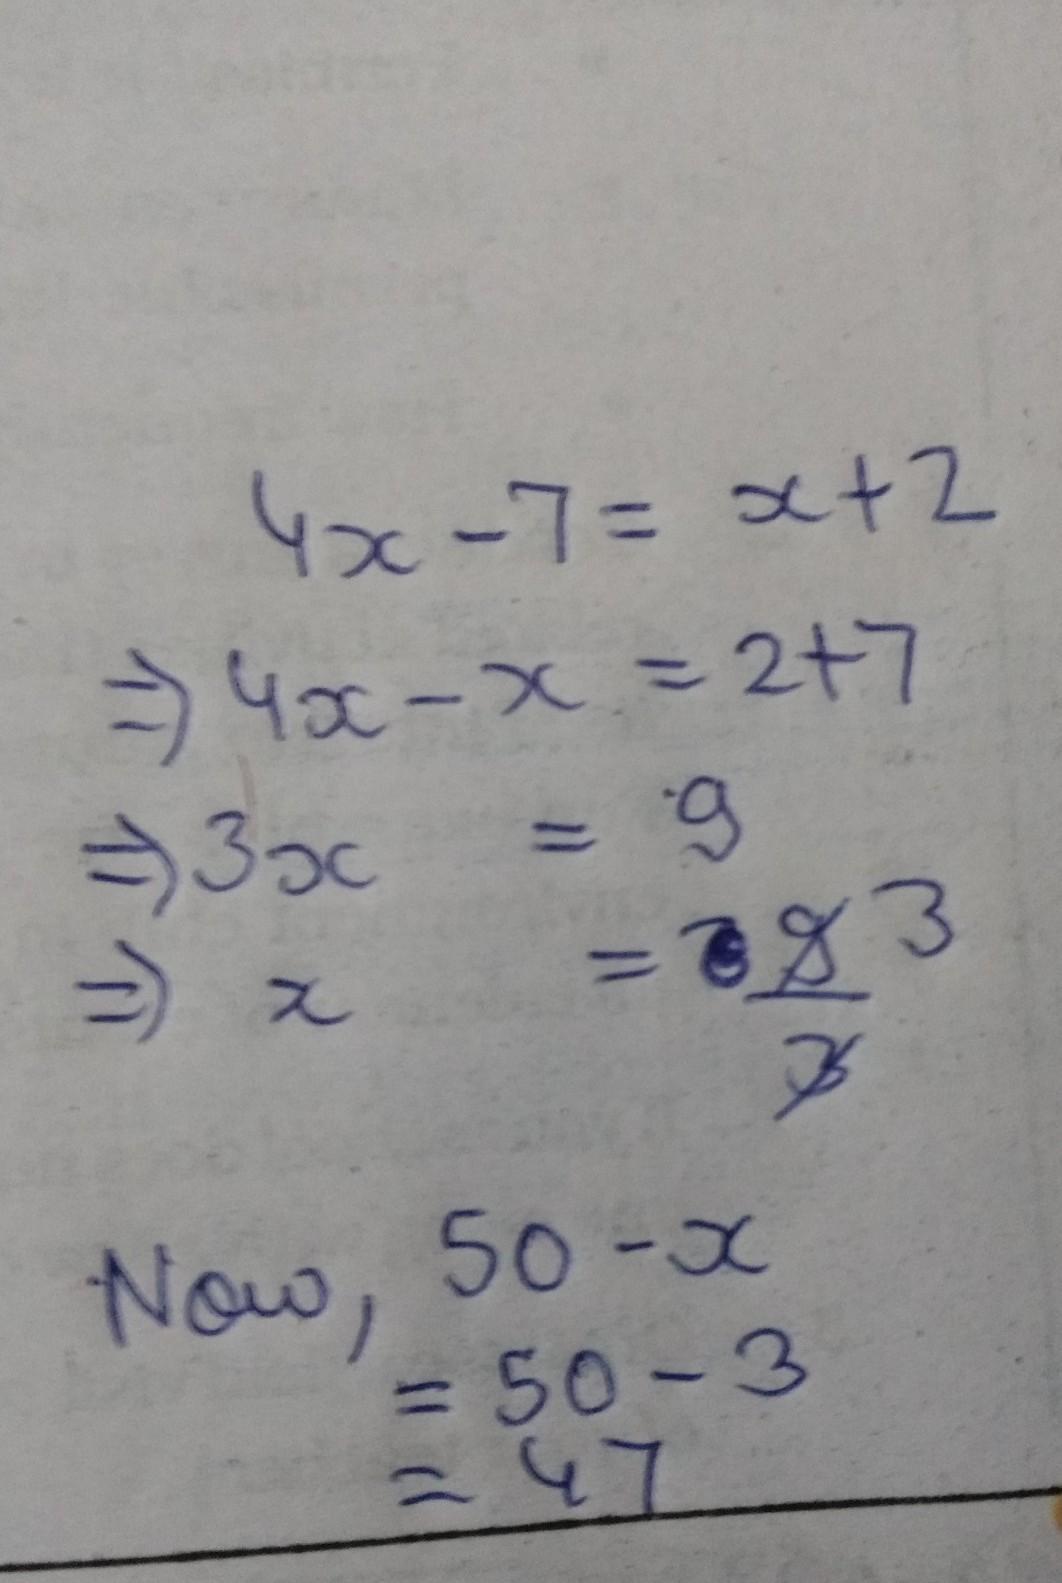 4x - 7 = x + 2
⇒ 4x - x = 2 + 7
⇒ 3x = 9
⇒ x = 9/3 3
Now, 50 - x
= 50 - 3
= 47